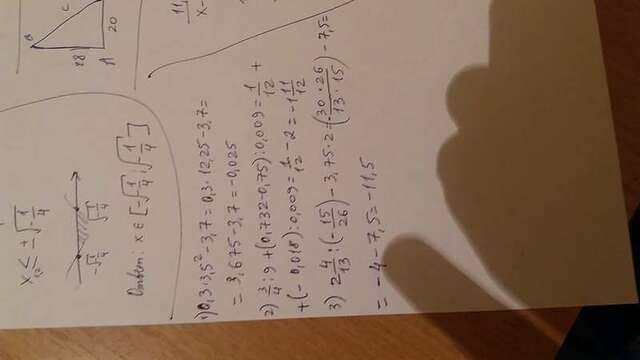 x₁₂ ≤ ± √-1/4
-√1/4 √1/4
Ответ: x ∈ [-√-1/4 ; √-1/4]
B
28
c
A
20
11,
x-
1) 0,3·3,5² - 3,7 = 0,3·12,25 - 3,7 =
= 3,675 - 3,7 = -0,025
2) 3/4 : 9 + (0,732 - 0,75) : 0,009 = 1/12 +
+ (- 0,018) : 0,009 = 1/12 - 2 = -1 11/12
3) 2 4/13 : (- 15/26) - 3,75·2 = (- 30·26/13·15) - 7,5 =
= -4 - 7,5 = -11,5